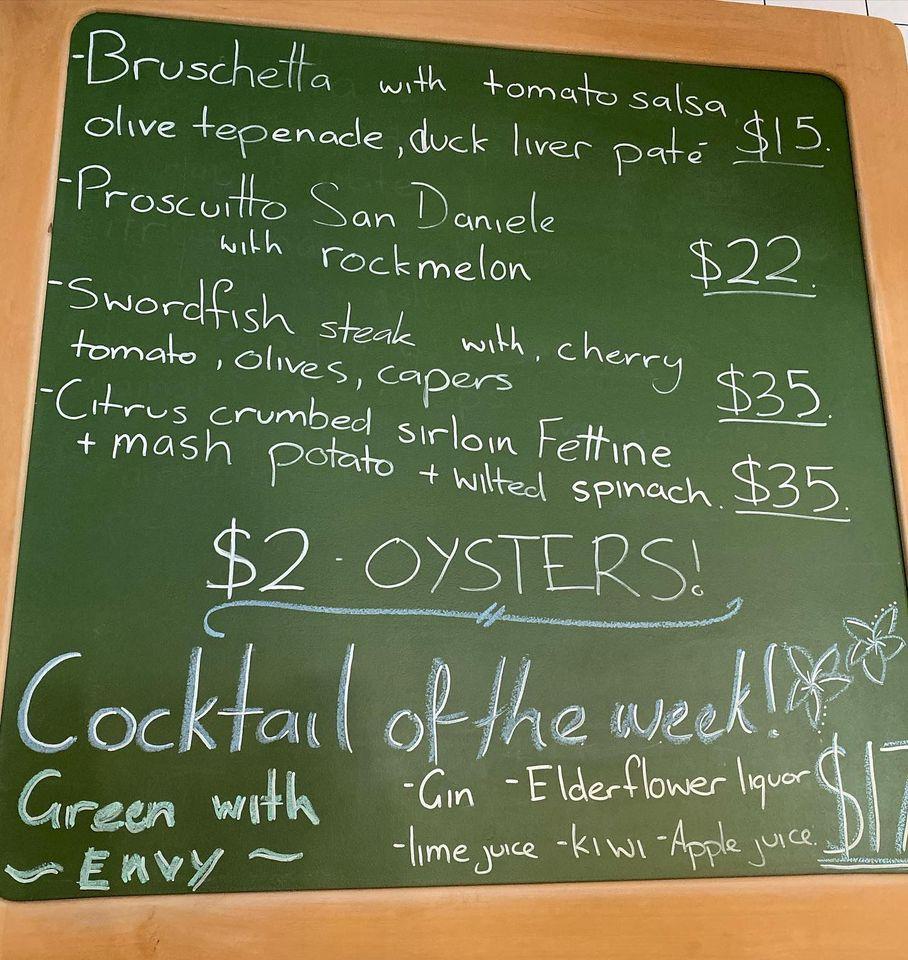 -Bruschetta with tomato salsa
olive tepenade, duck liver paté $15.
-Proscuitto San Daniele
with rockmelon $22.
-Swordfish steak with, cherry
tomato, olives, capers $35.
-Citrus crumbed sirloin Fettine
+ mash potato + wilted spinach. $35.
$2 - OYSTERS!
Cocktail of the week!
Green with -Gin -Elderflower liquor $17
~ Envy ~ -lime juice -kiwi -Apple juice.